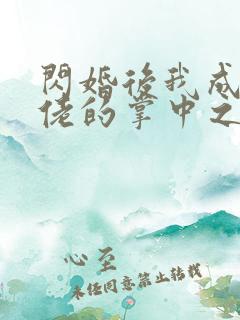 閃婚後我成
佬的掌中之
心至
未任同意禁止转载